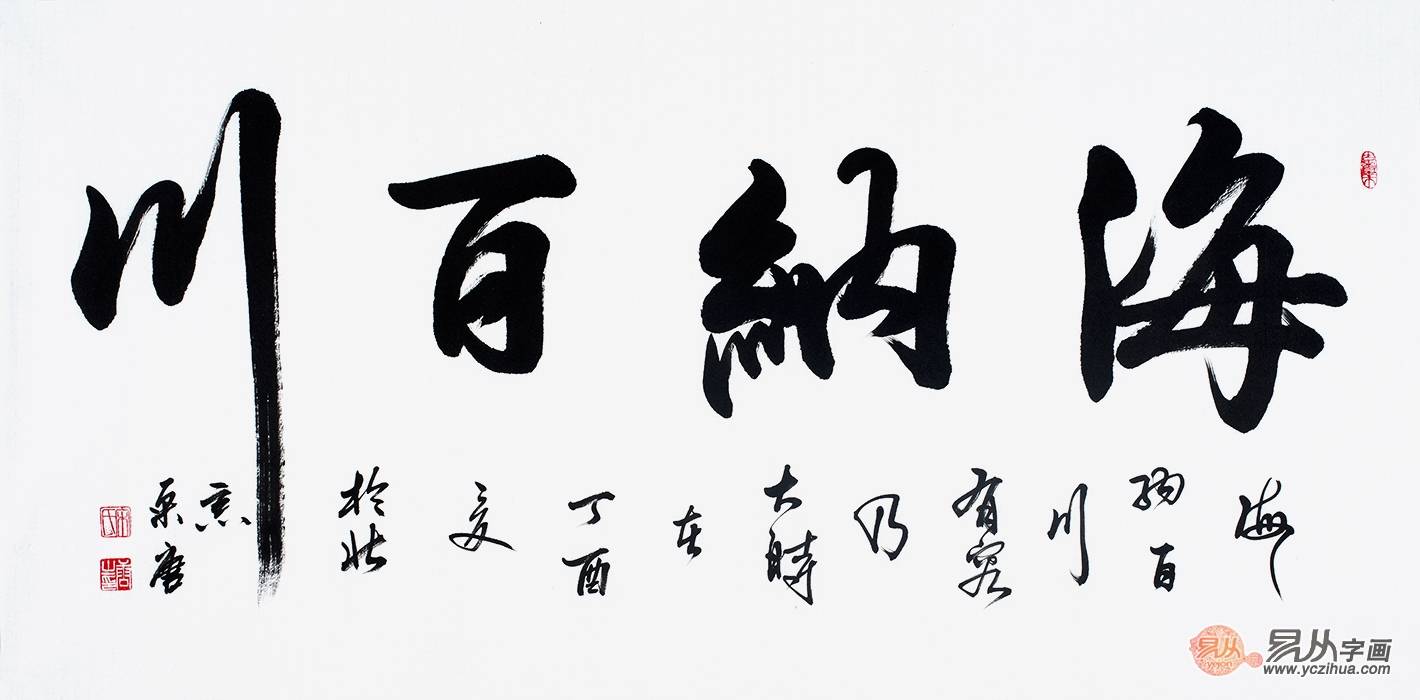 海納百川
海
納百
川
有容
乃
大時
在
丁酉
夏
於北
京
宋唐
易从
易从字画
www.yczihua.com